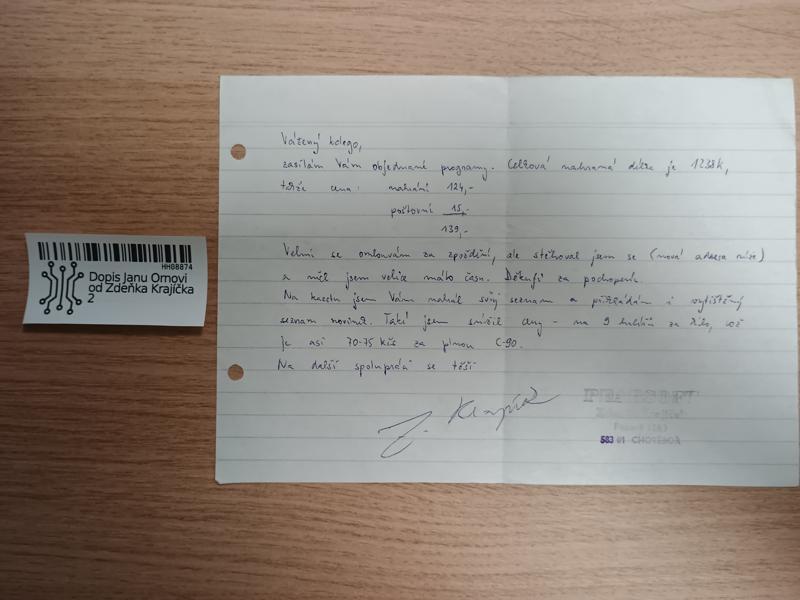 HH08074
Dopis Janu Ornovi
od Zdeňka Krajíčka
2
Vážený kolego,
zasílám Vám objednané programy. Celková nahraná délka je 1238K,
takže cena: nahrání 124,-
poštovní 15,-
139,-
Velmi se omlouvám za zpoždění, ale stěhoval jsem se (nová adresa níže)
a měl jsem velice málo času. Děkuji za pochopení.
Na kazetu jsem Vám nahrál svůj seznam a přikládám i vytištěný
seznam novinek. Také jsem snížil ceny - na 9 haléřů za kilo, což
je asi 70-75 Kčs za plnou C-90.
Na další spolupráci se těší
Z. Krajíček
583 01 CHOTĚBOŘ